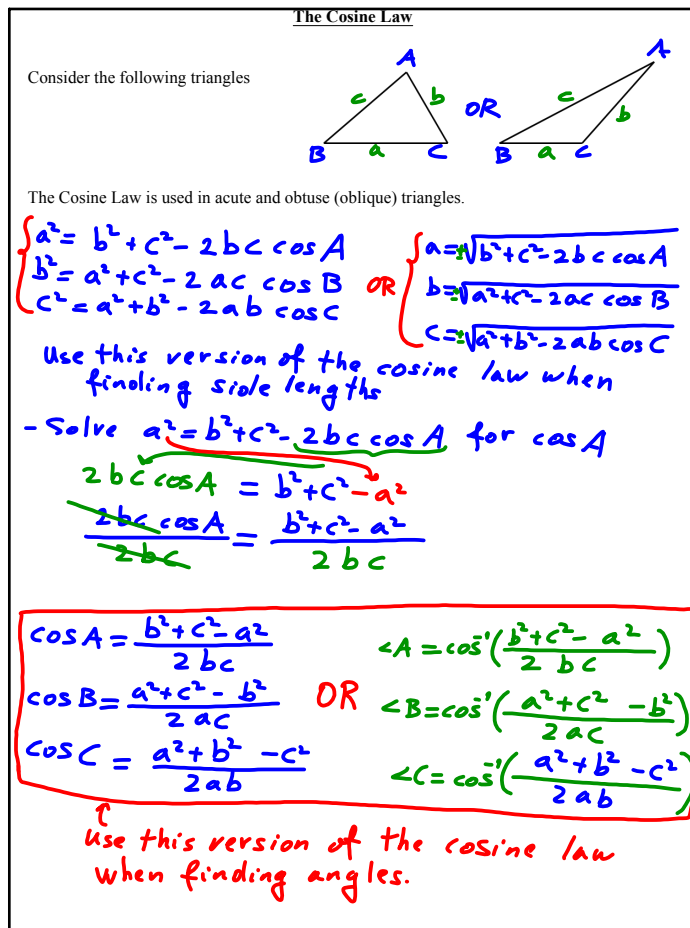 The Cosine Law
Consider the following triangles
A
c b
B a C
OR
A
c b
B a C
The Cosine Law is used in acute and obtuse (oblique) triangles.
a² = b² + c² - 2bc cos A
b² = a² + c² - 2ac cos B
c² = a² + b² - 2ab cos C
OR
a = ±√b² + c² - 2bc cos A
b = ±√a² + c² - 2ac cos B
c = ±√a² + b² - 2ab cos C
Use this version of the cosine law when
finding side lengths
- Solve a² = b² + c² - 2bc cos A for cos A
2bc cos A = b² + c² - a²
2bc cos A / 2bc = b² + c² - a² / 2bc
cos A = b² + c² - a² / 2bc
cos B = a² + c² - b² / 2ac
cos C = a² + b² - c² / 2ab
OR
∠A = cos⁻¹(b² + c² - a² / 2bc)
∠B = cos⁻¹(a² + c² - b² / 2ac)
∠C = cos⁻¹(a² + b² - c² / 2ab)
Use this version of the cosine law
when finding angles.